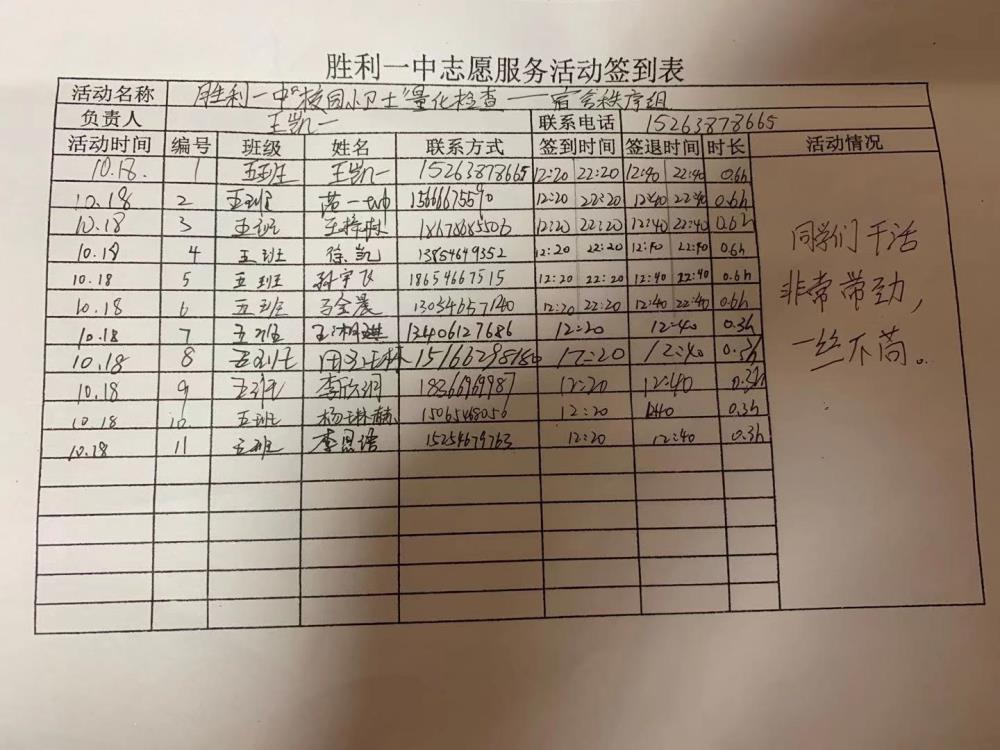 胜利一中志愿服务活动签到表
活动名称 胜利一中"校园小卫士"量化检查——宿舍秩序组
负责人 王凯一 联系电话 15263878665
活动时间 编号 班级 姓名 联系方式 签到时间 签退时间 时长 活动情况
10.18. 1 五班 王凯一 15263878665 12:20 22:20 12:40 22:40 0.6h
10.18 2 五班 12:20 22:20 12:40 22:40 0.6h
10.18 3 五班 18678685506 12:20 22:20 12:40 22:40 0.6h
10.18 4 五班 徐凯 13854649352 12:20 22:20 12:40 22:40 0.6h
10.18 5 五班 孙宇飞 18654667515 12:20 22:20 12:40 22:40 0.6h
10.18 6 五班 马金晨 12:20 22:20 12:40 22:40 0.6h
10.18 7 五班 13406127686 12:20 12:40 0.3h
10.18 8 五班 12:20 12:40 0.3h
10.18 9 五班 12:20 12:40 0.3h
10.18 10 五班 杨琳赫 15065468056 12:20 0.3h
10.18 11 五班 15254679763 12:20 12:40 0.3h
同学们干活
非常带劲，
一丝不苟。